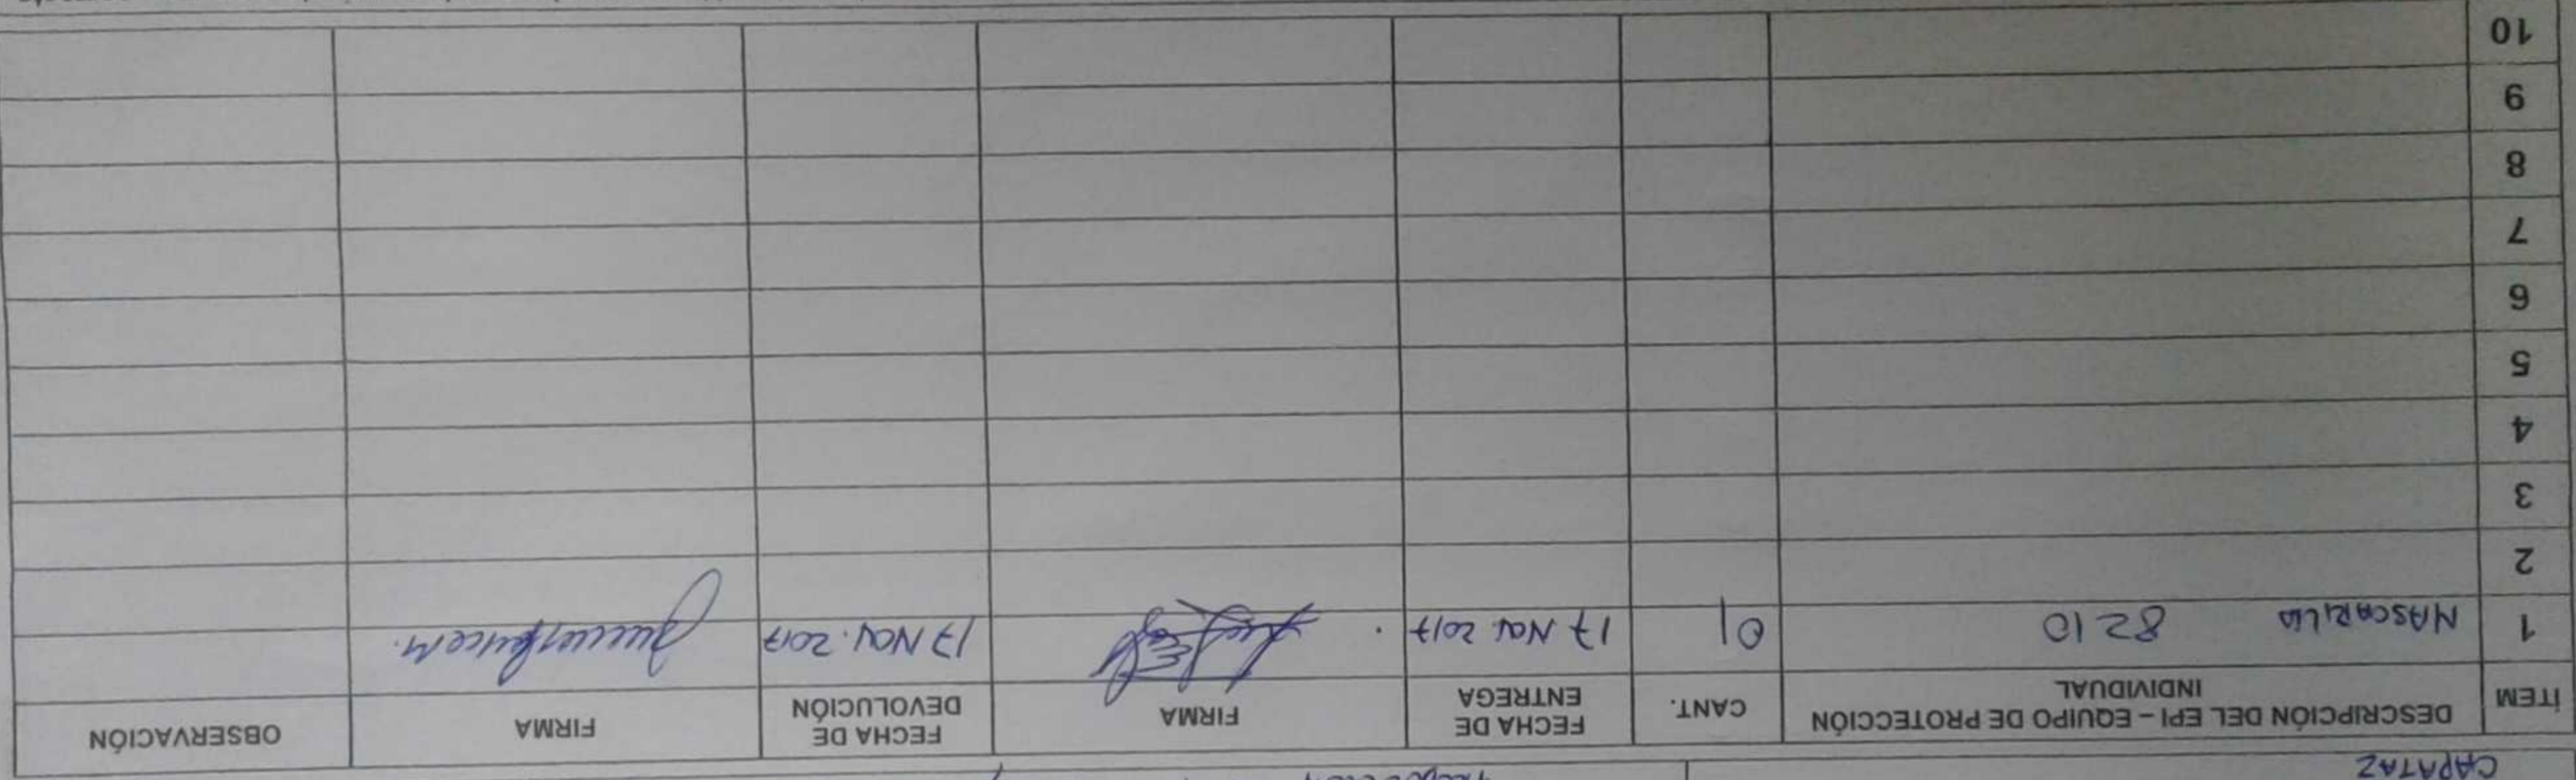 CAPATAZ
ÍTEM DESCRIPCIÓN DEL EPI – EQUIPO DE PROTECCIÓN INDIVIDUAL CANT. FECHA DE ENTREGA FIRMA FECHA DE DEVOLUCIÓN FIRMA OBSERVACIÓN
1 MASCARILLA 8210 01 17 NOV. 2017 17 NOV. 2017
2
3
4
5
6
7
8
9
10